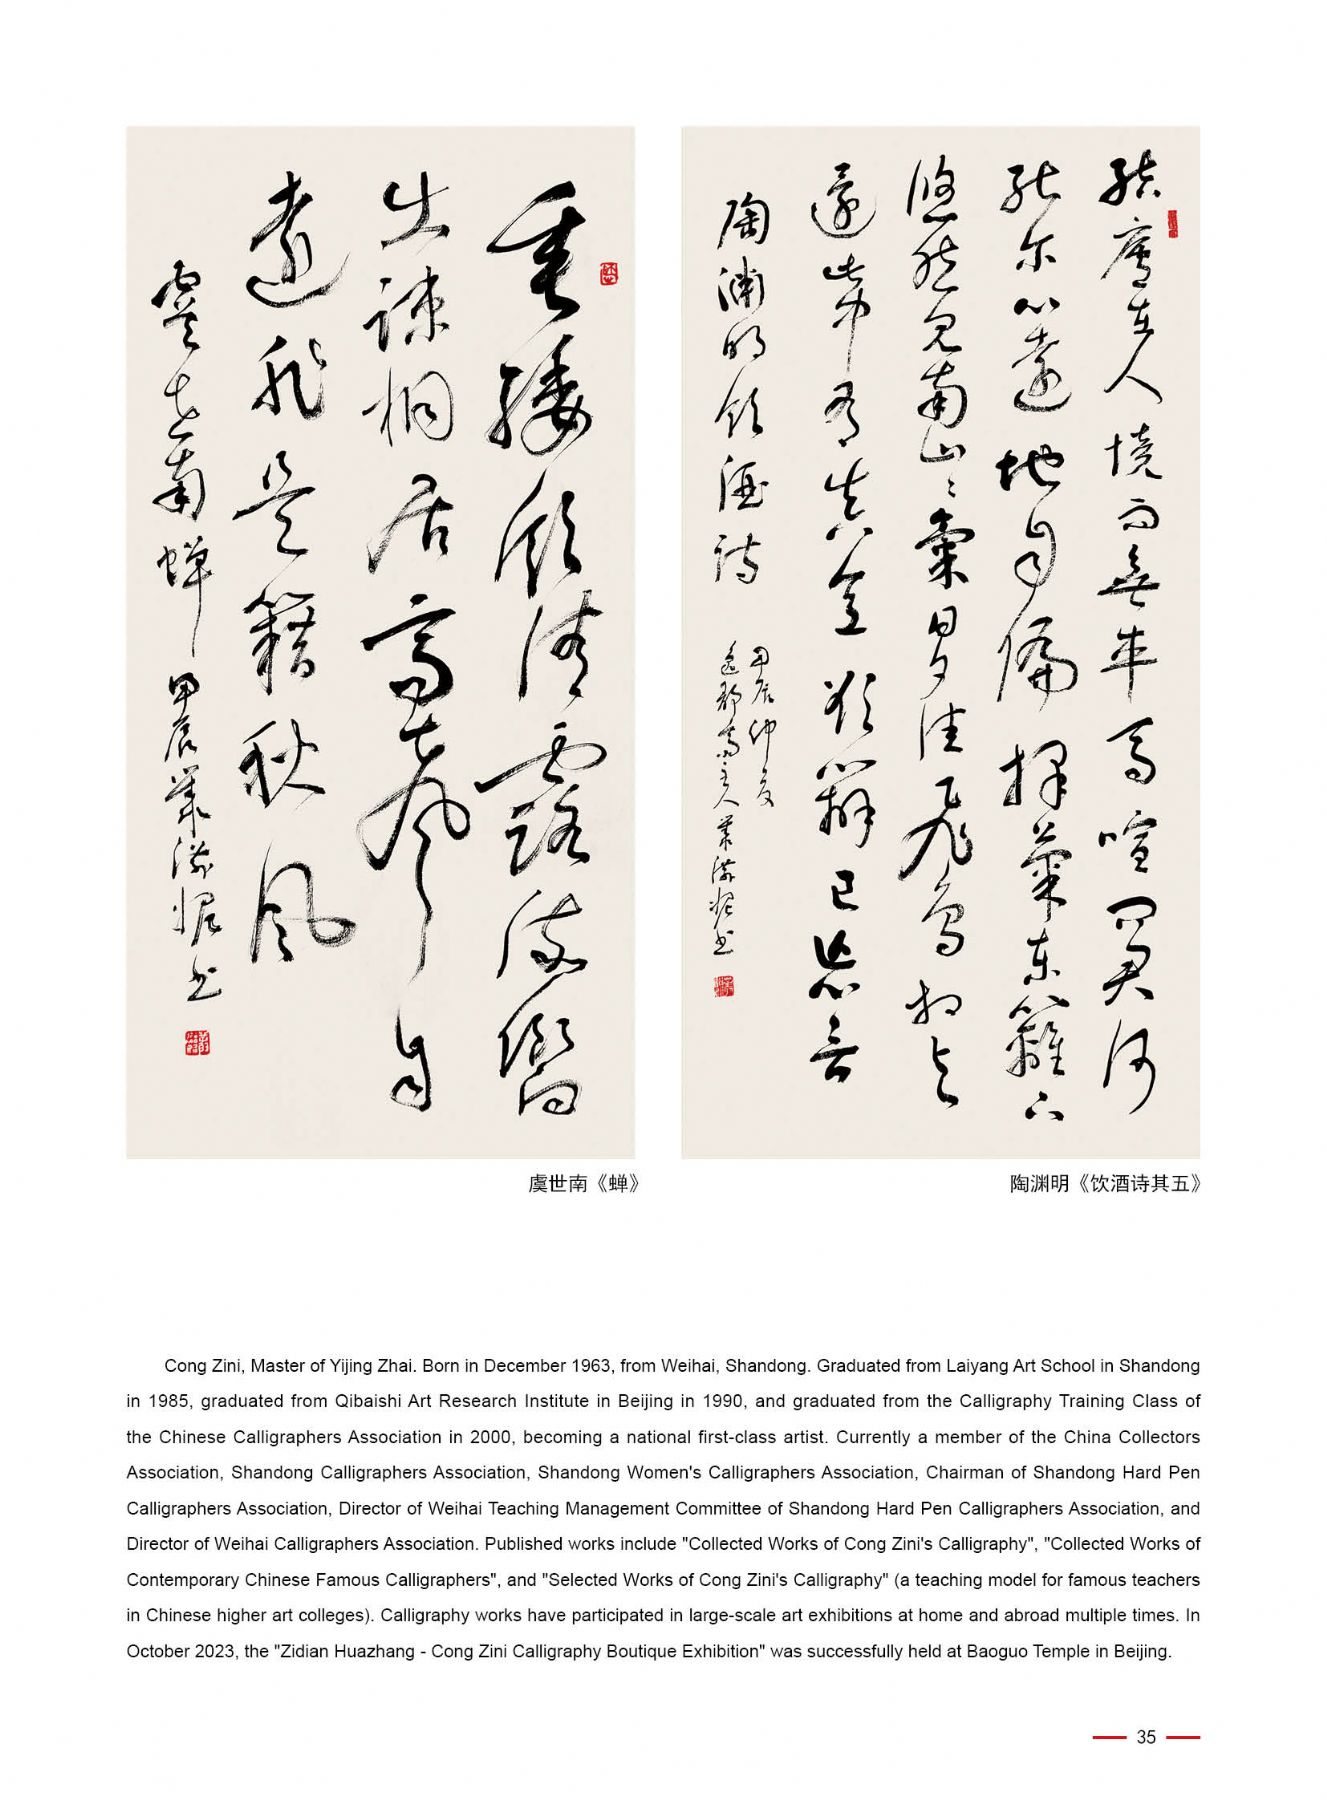 垂緌飲清露流響
出疎桐居高聲自
遠非是籍秋風
虞世南蝉
甲辰叢滋妮书
虞世南《蝉》
結廬在人境而無車馬喧問君何
能尔心遠地自偏採菊東籬下
悠然見南山〻氣日夕佳飛鳥相与
還此中有真意欲辯已忘言
陶渊明饮酒诗
甲辰仲夏
主人叢滋妮书
陶渊明《饮酒诗其五》
Cong Zini, Master of Yijing Zhai. Born in December 1963, from Weihai, Shandong. Graduated from Laiyang Art School in Shandong
in 1985, graduated from Qibaishi Art Research Institute in Beijing in 1990, and graduated from the Calligraphy Training Class of
the Chinese Calligraphers Association in 2000, becoming a national first-class artist. Currently a member of the China Collectors
Association, Shandong Calligraphers Association, Shandong Women's Calligraphers Association, Chairman of Shandong Hard Pen
Calligraphers Association, Director of Weihai Teaching Management Committee of Shandong Hard Pen Calligraphers Association, and
Director of Weihai Calligraphers Association. Published works include "Collected Works of Cong Zini's Calligraphy", "Collected Works of
Contemporary Chinese Famous Calligraphers", and "Selected Works of Cong Zini's Calligraphy" (a teaching model for famous teachers
in Chinese higher art colleges). Calligraphy works have participated in large-scale art exhibitions at home and abroad multiple times. In
October 2023, the "Zidian Huazhang - Cong Zini Calligraphy Boutique Exhibition" was successfully held at Baoguo Temple in Beijing.
35